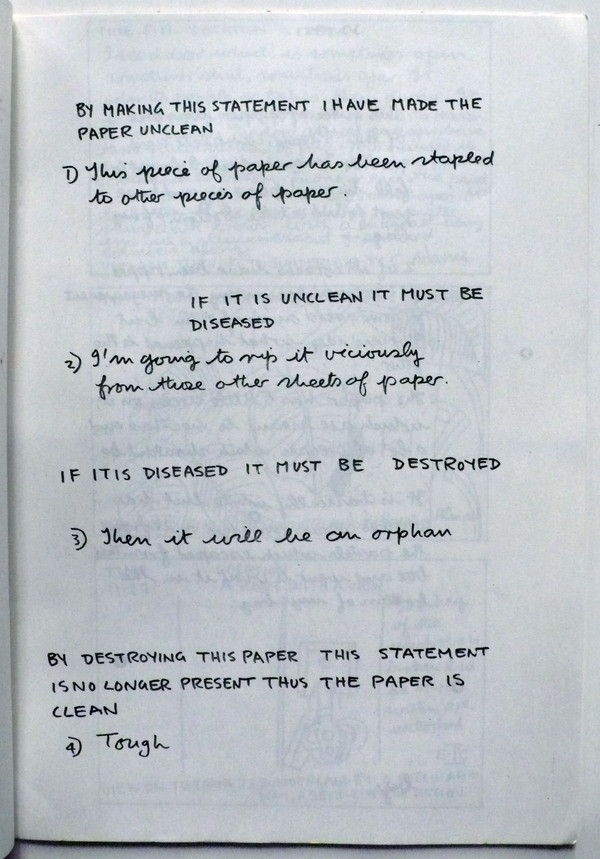 BY MAKING THIS STATEMENT I HAVE MADE THE
PAPER UNCLEAN
1) This piece of paper has been stapled
to other pieces of paper.
IF IT IS UNCLEAN IT MUST BE
DISEASED
2) I'm going to rip it viciously
from those other sheets of paper.
IF IT IS DISEASED IT MUST BE DESTROYED
3) Then it will be an orphan
BY DESTROYING THIS PAPER THIS STATEMENT
IS NO LONGER PRESENT THUS THE PAPER IS
CLEAN
4) Tough